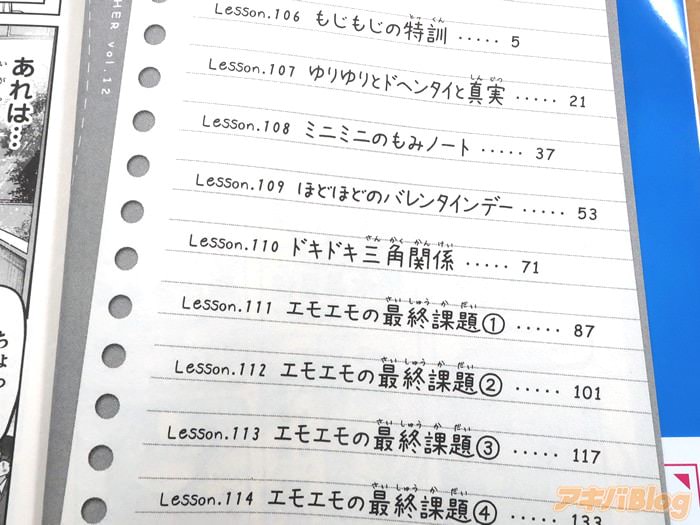 HER vol.12
あれは…
Lesson.106 もじもじの特訓 ..... 5
Lesson.107 ゆりゆりとドヘンタイと真実 ..... 21
Lesson.108 ミニミニのもみノート ..... 37
Lesson.109 ほどほどのバレンタインデー ..... 53
Lesson.110 ドキドキ三角関係 ..... 71
Lesson.111 エモエモの最終課題① ..... 87
Lesson.112 エモエモの最終課題② ..... 101
Lesson.113 エモエモの最終課題③ ..... 117
Lesson.114 エモエモの最終課題④ ..... 133
ちょっ
アキバBlog